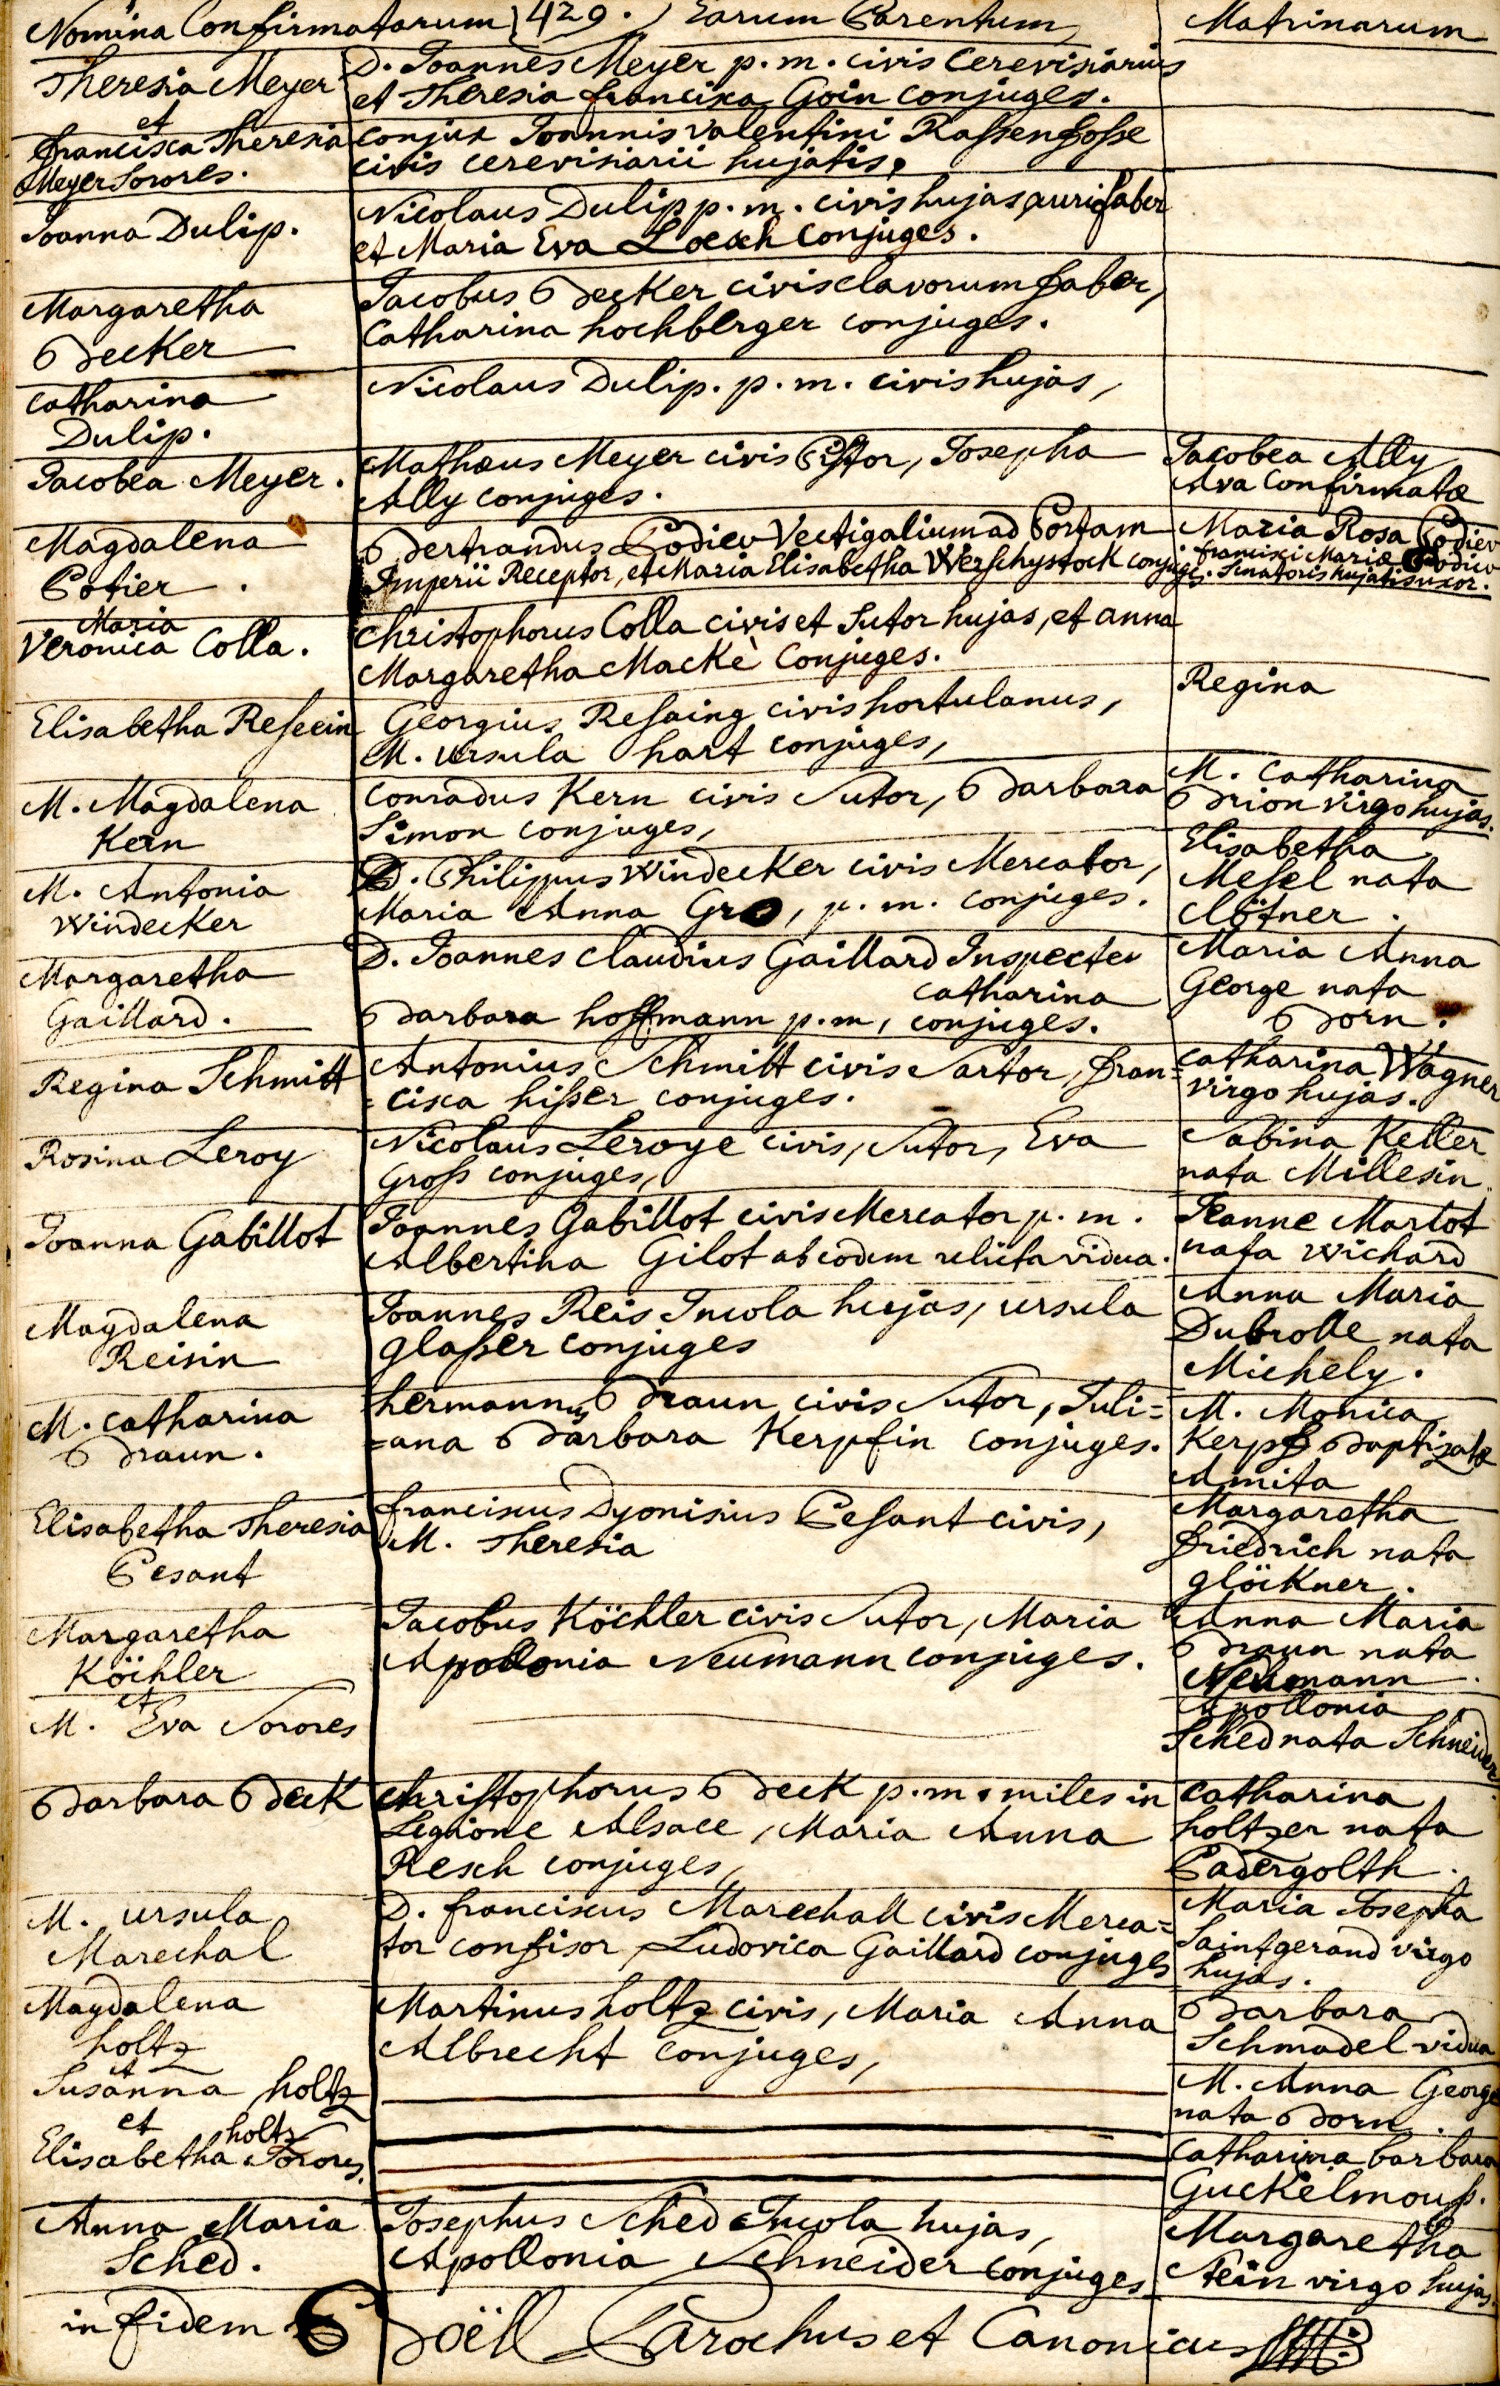 Nomina Confirmatarum 429. Earum Parentum Matrinarum
Theresia Meyer
et
francisca Theresia
Meyer Sorores.
D. Joannes Meyer p. m. civis Cerevisiarius
et Theresia francisca Goin conjuges.
conjux Joannis valentini Rassenfosse
civis cerevisiarii hujatis,
Joanna Dulip.
Nicolaus Dulip p. m. civis hujas, aurifaber
et Maria Eva Loesch Conjuges.
Margaretha
Becker
Jacobus Becker civis clavorum faber,
Catharina hochberger conjuges.
Catharina
Dulip.
Nicolaus Dulip. p. m. civis hujas,
Jacobea Meyer.
Mathæus Meyer civis Pistor, Josepha
Ally conjuges.
Jacobea Ally
Ava Confirmatæ
Magdalena
Potier.
Bertrandus Podiev Vectigalium ad Portam
Imperii Receptor, et Maria Elisabetha Werschystock conjuges.
Maria Rosa Podiev
francisci Mariæ Podiev
Senatoris hujatis uxor.
Maria
Veronica Colla.
Christophorus Colla civis et Sutor hujas, et anna
Margaretha Mackè Conjuges.
Elisabetha Reseein
Georgius Resaing civis hortulanus,
M. ursula hart conjuges,
Regina
M. Magdalena
Kern
Conradus Kern civis Sutor, Barbara
Simon conjuges,
M. Catharina
Brion virgo hujas.
M. Antonia
Windecker
D. Philippus Windecker civis Mercator,
Maria Anna Gro, p. m. conjuges.
Elisabetha
Mesel nata
Clötner.
Margaretha
Gaillard.
D. Joannes Claudius Gaillard Inspecteu
catharina
Barbara hoffmann p. m, conjuges.
Maria Anna
George nata
Born.
Regina Schmitt
Antonius Schmitt civis Sartor, fran=
=cisca hisser conjuges.
Catharina Wagner
virgo hujas.
Rosina Leroy
Nicolaus Leroye civis, Sutor, Eva
Gross conjuges,
Sabina Keller
nata Millesin.
Joanna Gabillot
Joannes Gabillot civis Mercator p. m.
Albertina Gilot ab eodem relicta vidua.
Jeanne Marlot
nata Wichard
Magdalena
Reisin
Joannes Reis Incola hujas, ursula
glasser conjuges
Anna Maria
Dubrolle nata
Michely.
M. Catharina
Braun.
hermannus Braun civis Sutor, Juli=
=ana Barbara Kerpfin conjuges.
M. Monica
Kerpf Baptizatæ
Amita
Elisabetha Theresia
Pesant
franciscus Dyonisius Pesant civis,
M. Theresia
Margaretha
friedrich nata
glöckner.
Margaretha
Köchler
et
M. Eva Sorores
Jacobus Köchler civis Sutor, Maria
Apollonia Neumann conjuges.
Anna Maria
Braun nata
Neumann.
Apollonia
Sched nata Schneider.
Barbara Beck
Christophorus Beck p. m. miles in
Legione Alsace, Maria Anna
Resch conjuges,
Catharina
holtzer nata
Padergolth.
M. ursula
Marechal
D. franciscus Marechall civis Merca=
tor confisor, Ludovica Gaillard conjuges
Maria Josepha
Saintgerand virgo
hujas.
Magdalena
holtz
et
Susanna holtz
et holtz
Elisabetha Sorores.
Martinus holtz civis, Maria Anna
Albrecht conjuges,
Barbara
Schmadel vidua
M. Anna George
nata Born.
Catharina barbara
Guckelmous.
Anna Maria
Sched.
Josephus Sched Incola hujas,
Apollonia Schneider conjuges
Margaretha
Stein virgo hujas.
in fidem Boëll Parochus et Canonicus